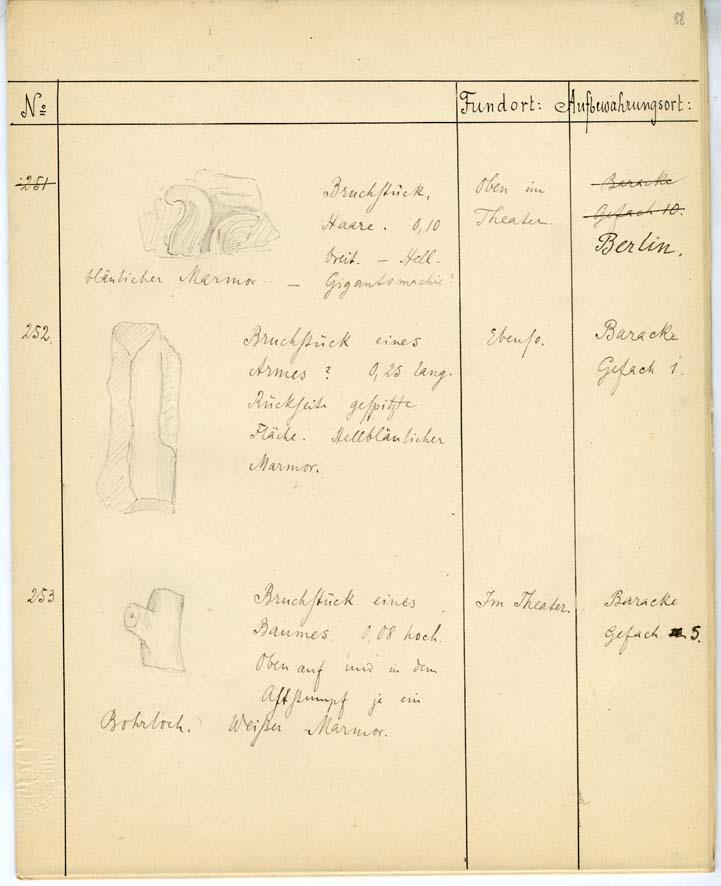 88
No Fundort: Aufbewahrungsort:
251 Bruchstück, Oben im Baracke
Haare. 0,10 Theater. Gefach 10.
breit. – Hell. Berlin.
bläulicher Marmor. – Gigantomachie?
252. Bruchstück eines Ebenso. Baracke
Armes ? 0,25 lang. Gefach 1.
Rückseite gespitzte
Fläche. Hellbläulicher
Marmor.
253 Bruchstück eines Im Theater. Baracke
Baumes. 0,08 hoch. Gefach 5.
Oben auf und in dem
Aststumpf je ein
Bohrloch. Weißer Marmor.